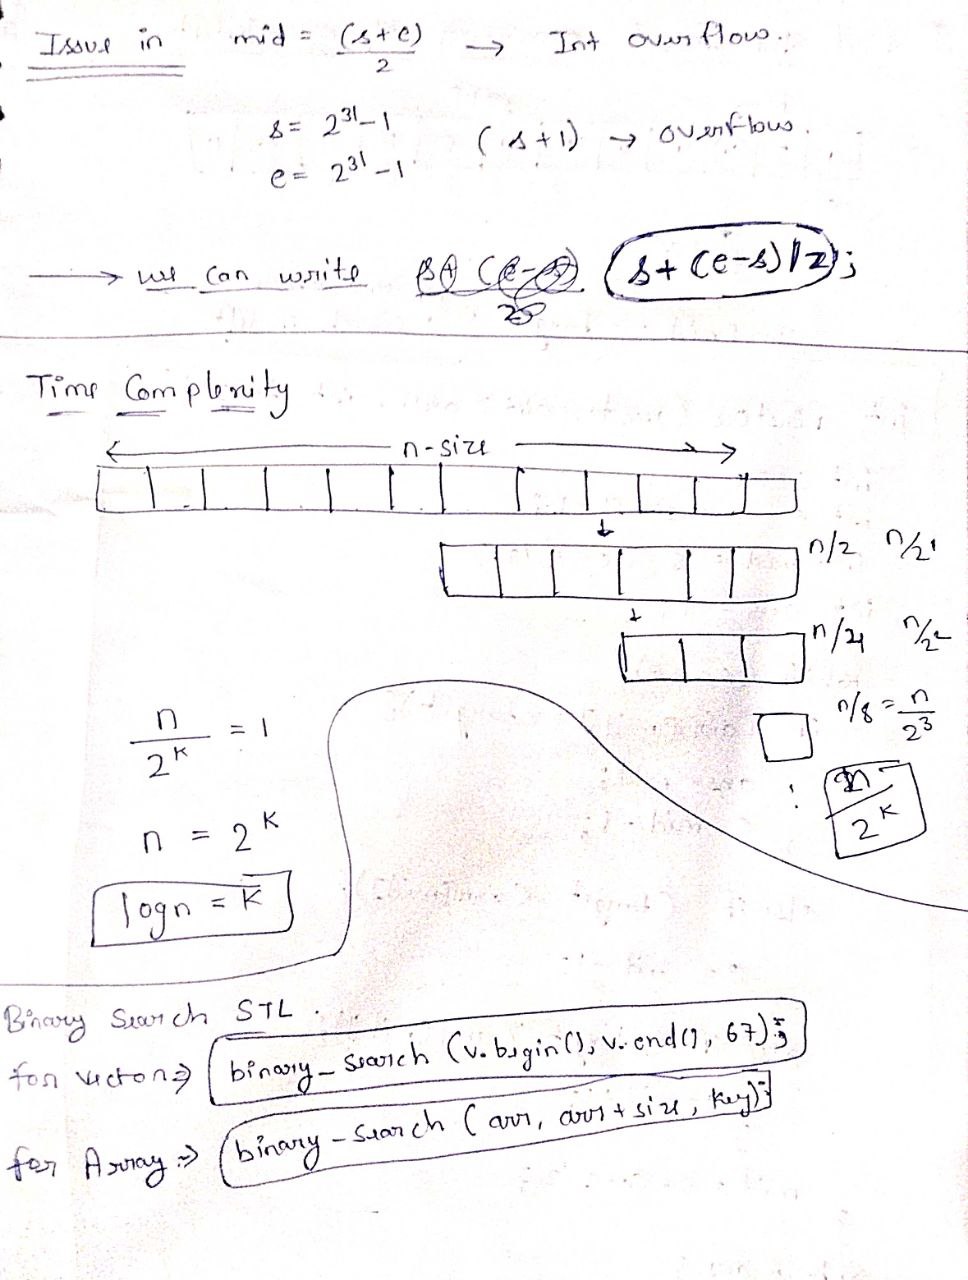 Issue in mid = (s+e)/2 → Int overflow.
s = 2^31-1
e = 2^31-1
(s+1) → overflow.
→ we can write s+(e-s)/2;
Time Complexity
n-size
n/2 n/2^1
n/4 n/2^2
n/8 = n/2^3
n/2^k
n/2^k = 1
n = 2^k
logn = k
Binary Search STL.
for vector ⇒ binary_search (v.begin(), v.end(), 67);
for Array ⇒ binary-search (arr, arr+size, key);